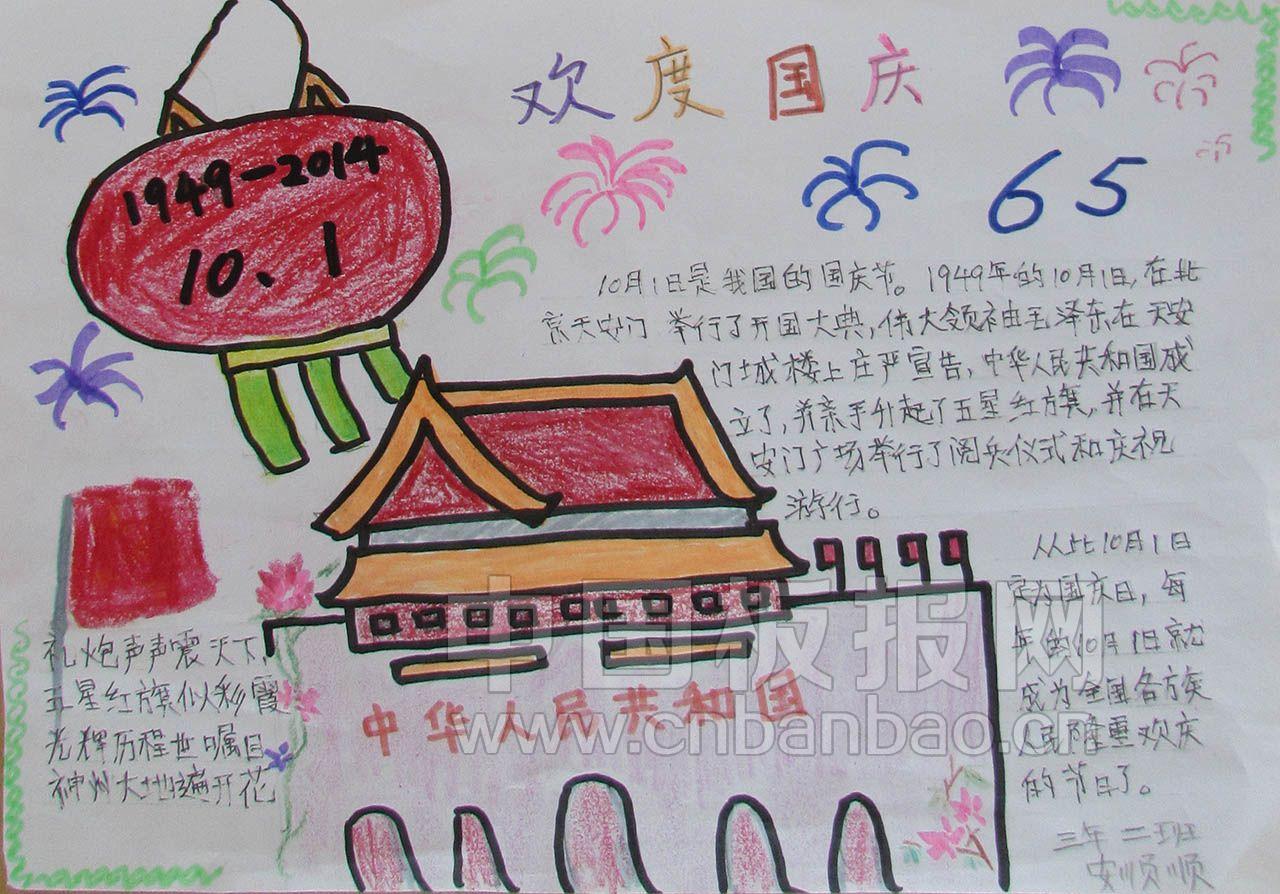 欢度国庆
1949-2014
10.1
65
10月1日是我国的国庆节。1949年的10月1日,在北
京天安门 举行了开国大典,伟大领袖毛泽东在天安
门城楼上庄严宣告,中华人民共和国成
立了,并亲手升起了五星红旗,并在天
安门广场举行了阅兵仪式和庆祝
游行。
从此10月1日
定为国庆日,每
年的10月1日就
成为全国各族
人民隆重欢庆
的节日了。
礼炮声声震天下,
五星红旗似彩霞
光辉历程世瞩目
神州大地遍开花
中华人民共和国
中国板报网
www.cnbanbao.cn
三年二班
安顺顺